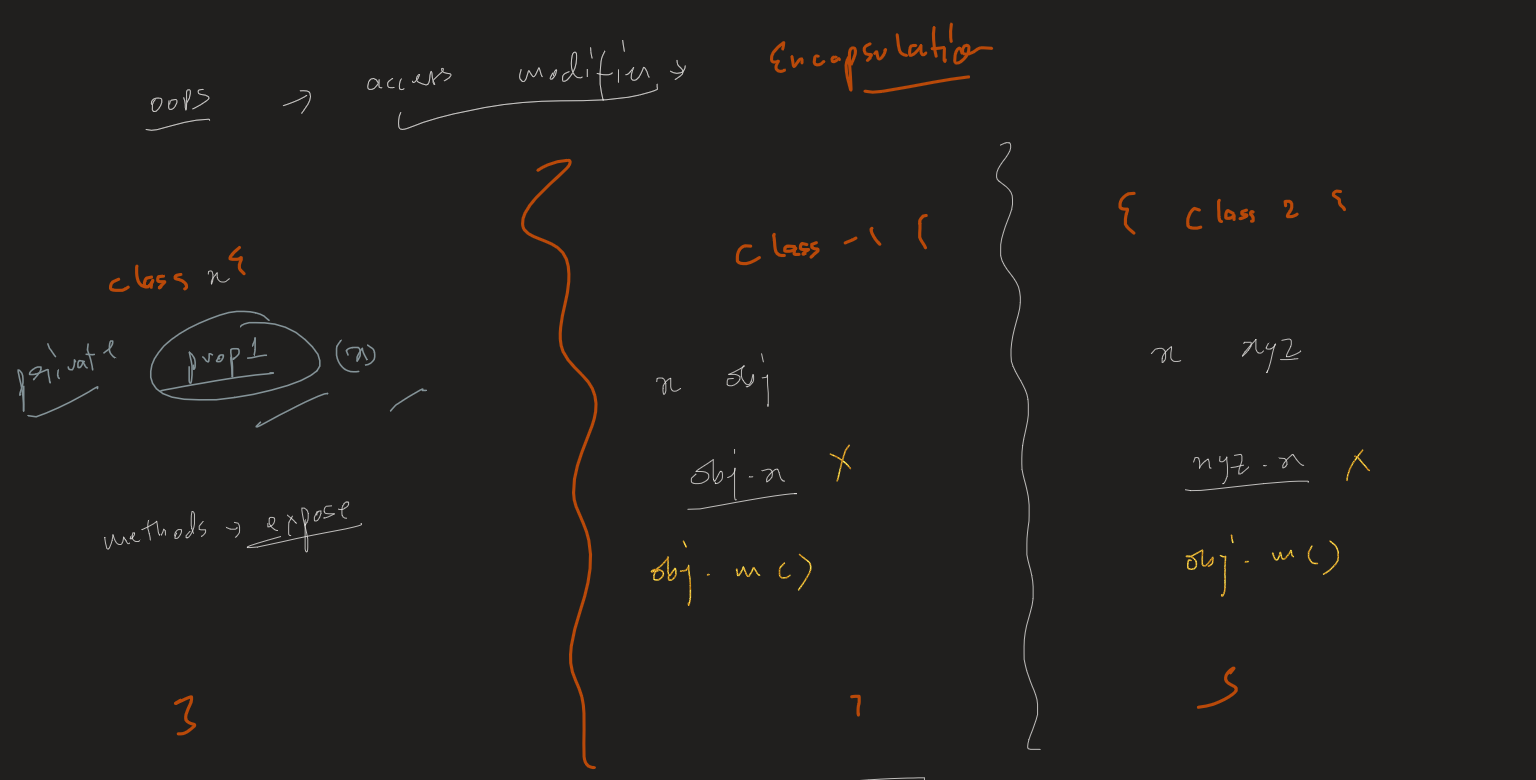 oops → access modifier → Encapsulation
class x {
private prop1 (x)
methods → expose
}
class-1 {
x obj
obj.x X
obj.m()
}
{ class 2 {
x xyz
xyz.x X
obj.m()
}